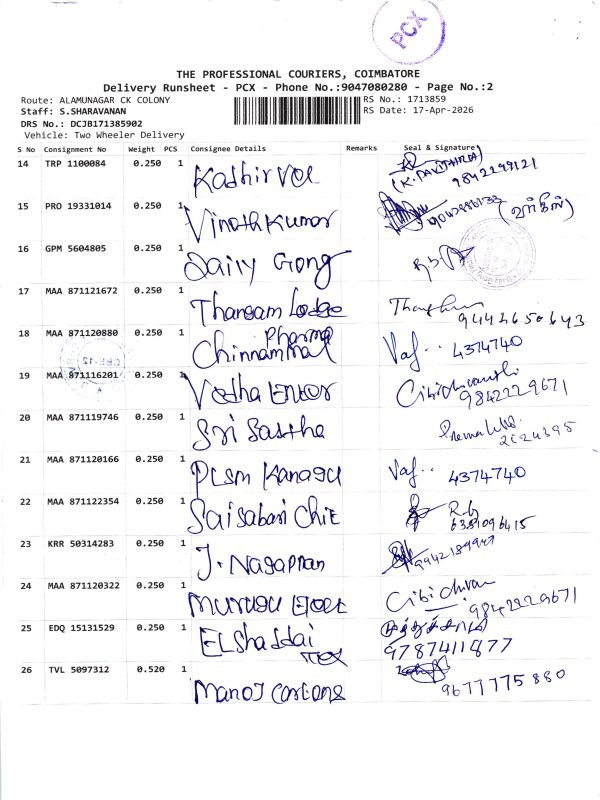 PCX
THE PROFESSIONAL COURIERS, COIMBATORE
Delivery Runsheet - PCX - Phone No.:9047080280 - Page No.:2
Route: ALAMUNAGAR CK COLONY RS No.: 1713859
Staff: S.SHARAVANAN RS Date: 17-Apr-2026
DRS No.: DCJB171385902
Vehicle: Two Wheeler Delivery
S No Consignment No Weight PCS Consignee Details Remarks Seal & Signature
14 TRP 1100084 0.250 1 Kathirvel (K. PAVITHRA)
9842299121
15 PRO 19331014 0.250 1 Vinoth Kumar
16 GPM 5604805 0.250 1 Dairy Gong
17 MAA 871121672 0.250 1 Thangam Lodge
9442650643
18 MAA 871120880 0.250 1 Chinnammal Pharma 4374740
19 MAA 871116201 0.250 1 Vedha Enter
9842229671
20 MAA 871119746 0.250 1 Sri Sastha
2C24395
21 MAA 871120166 0.250 1 PLSM Kanagu 4374740
22 MAA 871122354 0.250 1 Saisabari Chit
6381096415
23 KRR 50314283 0.250 1 J. Nagappan
24 MAA 871120322 0.250 1 Murugu
9842229671
25 EDQ 15131529 0.250 1 ELShaddai
Tex 9787411877
26 TVL 5097312 0.520 1 Manoj Cartons 9677775880